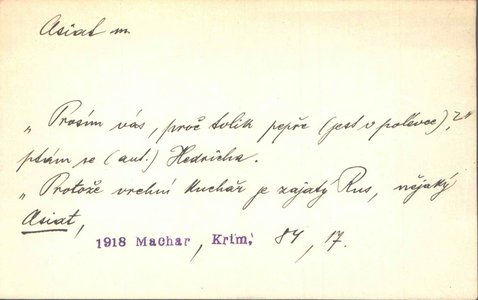 Asiat m.
„Prosím vás, proč tolik pepře (jest v polévce)?"
ptám se (aut.) Hedricha.
„Protože vrchní kuchař je zajatý Rus, nějaký
Asiat,
1918 Machar, Krim, 84, 17.